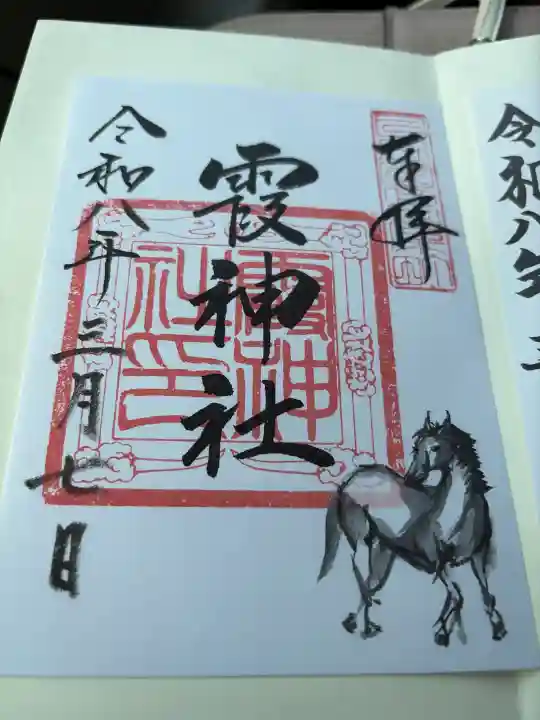 令和八年
三
奉拝
霞神社
霞神社印
令和八年三月七日